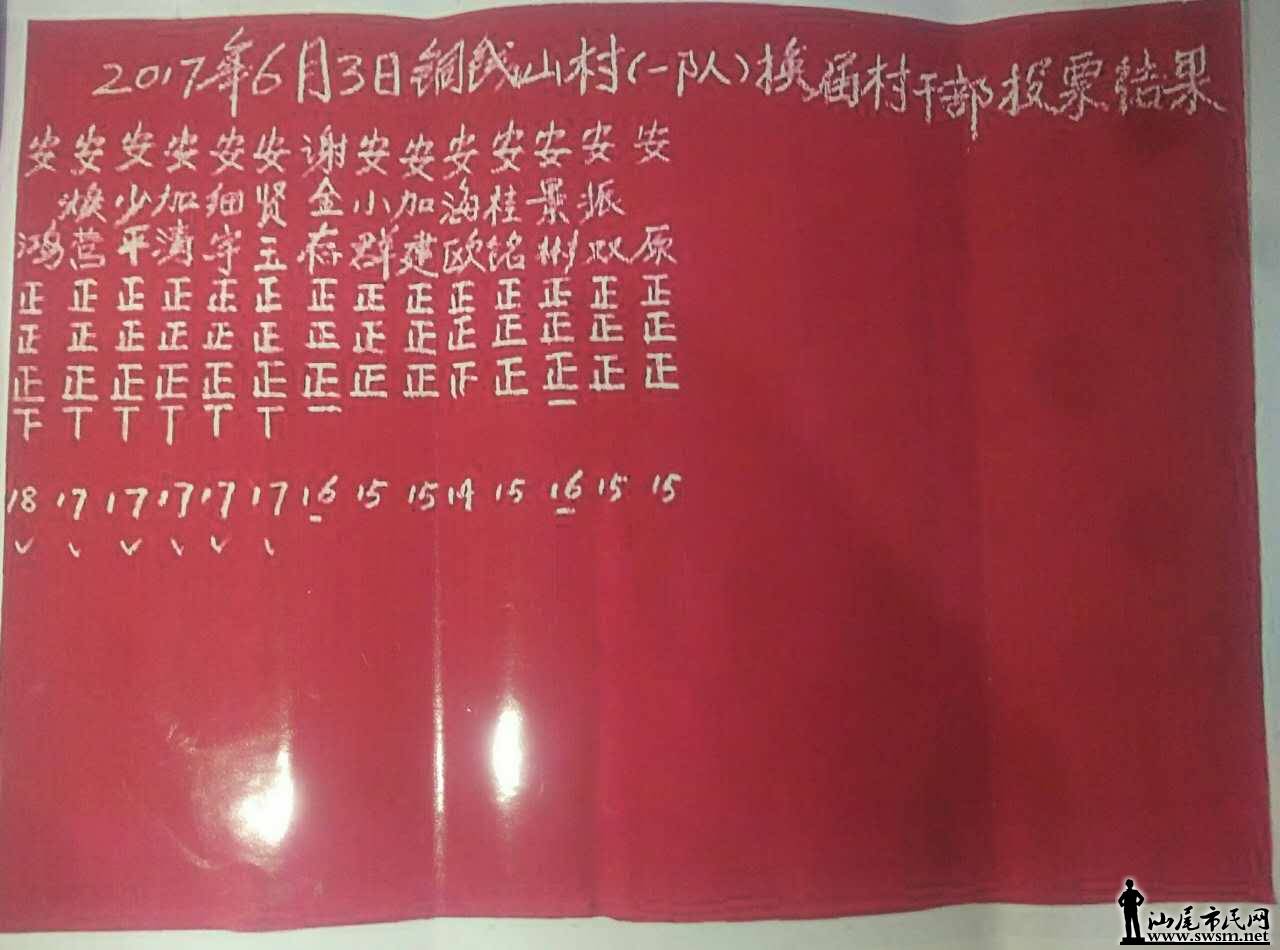 2017年6月3日铜钱山村(一队)换届村干部投票结果
安 安 安 安 安 安 谢 安 安 安 安 安 安 安
焕 少 加 细 贤 金 小 加 海 桂 景 振
鸿 营 平 涛 宇 玉 存 群 建 欧 铭 彬 双 原
正 正 正 正 正 正 正 正 正 正 正 正 正 正
正 正 正 正 正 正 正 正 正 正 正 正 正 正
正 正 正 正 正 正 正 正 正 正 正 正 正
18 17 17 17 17 17 16 15 15 14 15 16 15 15
汕尾市民网
www.swsm.net